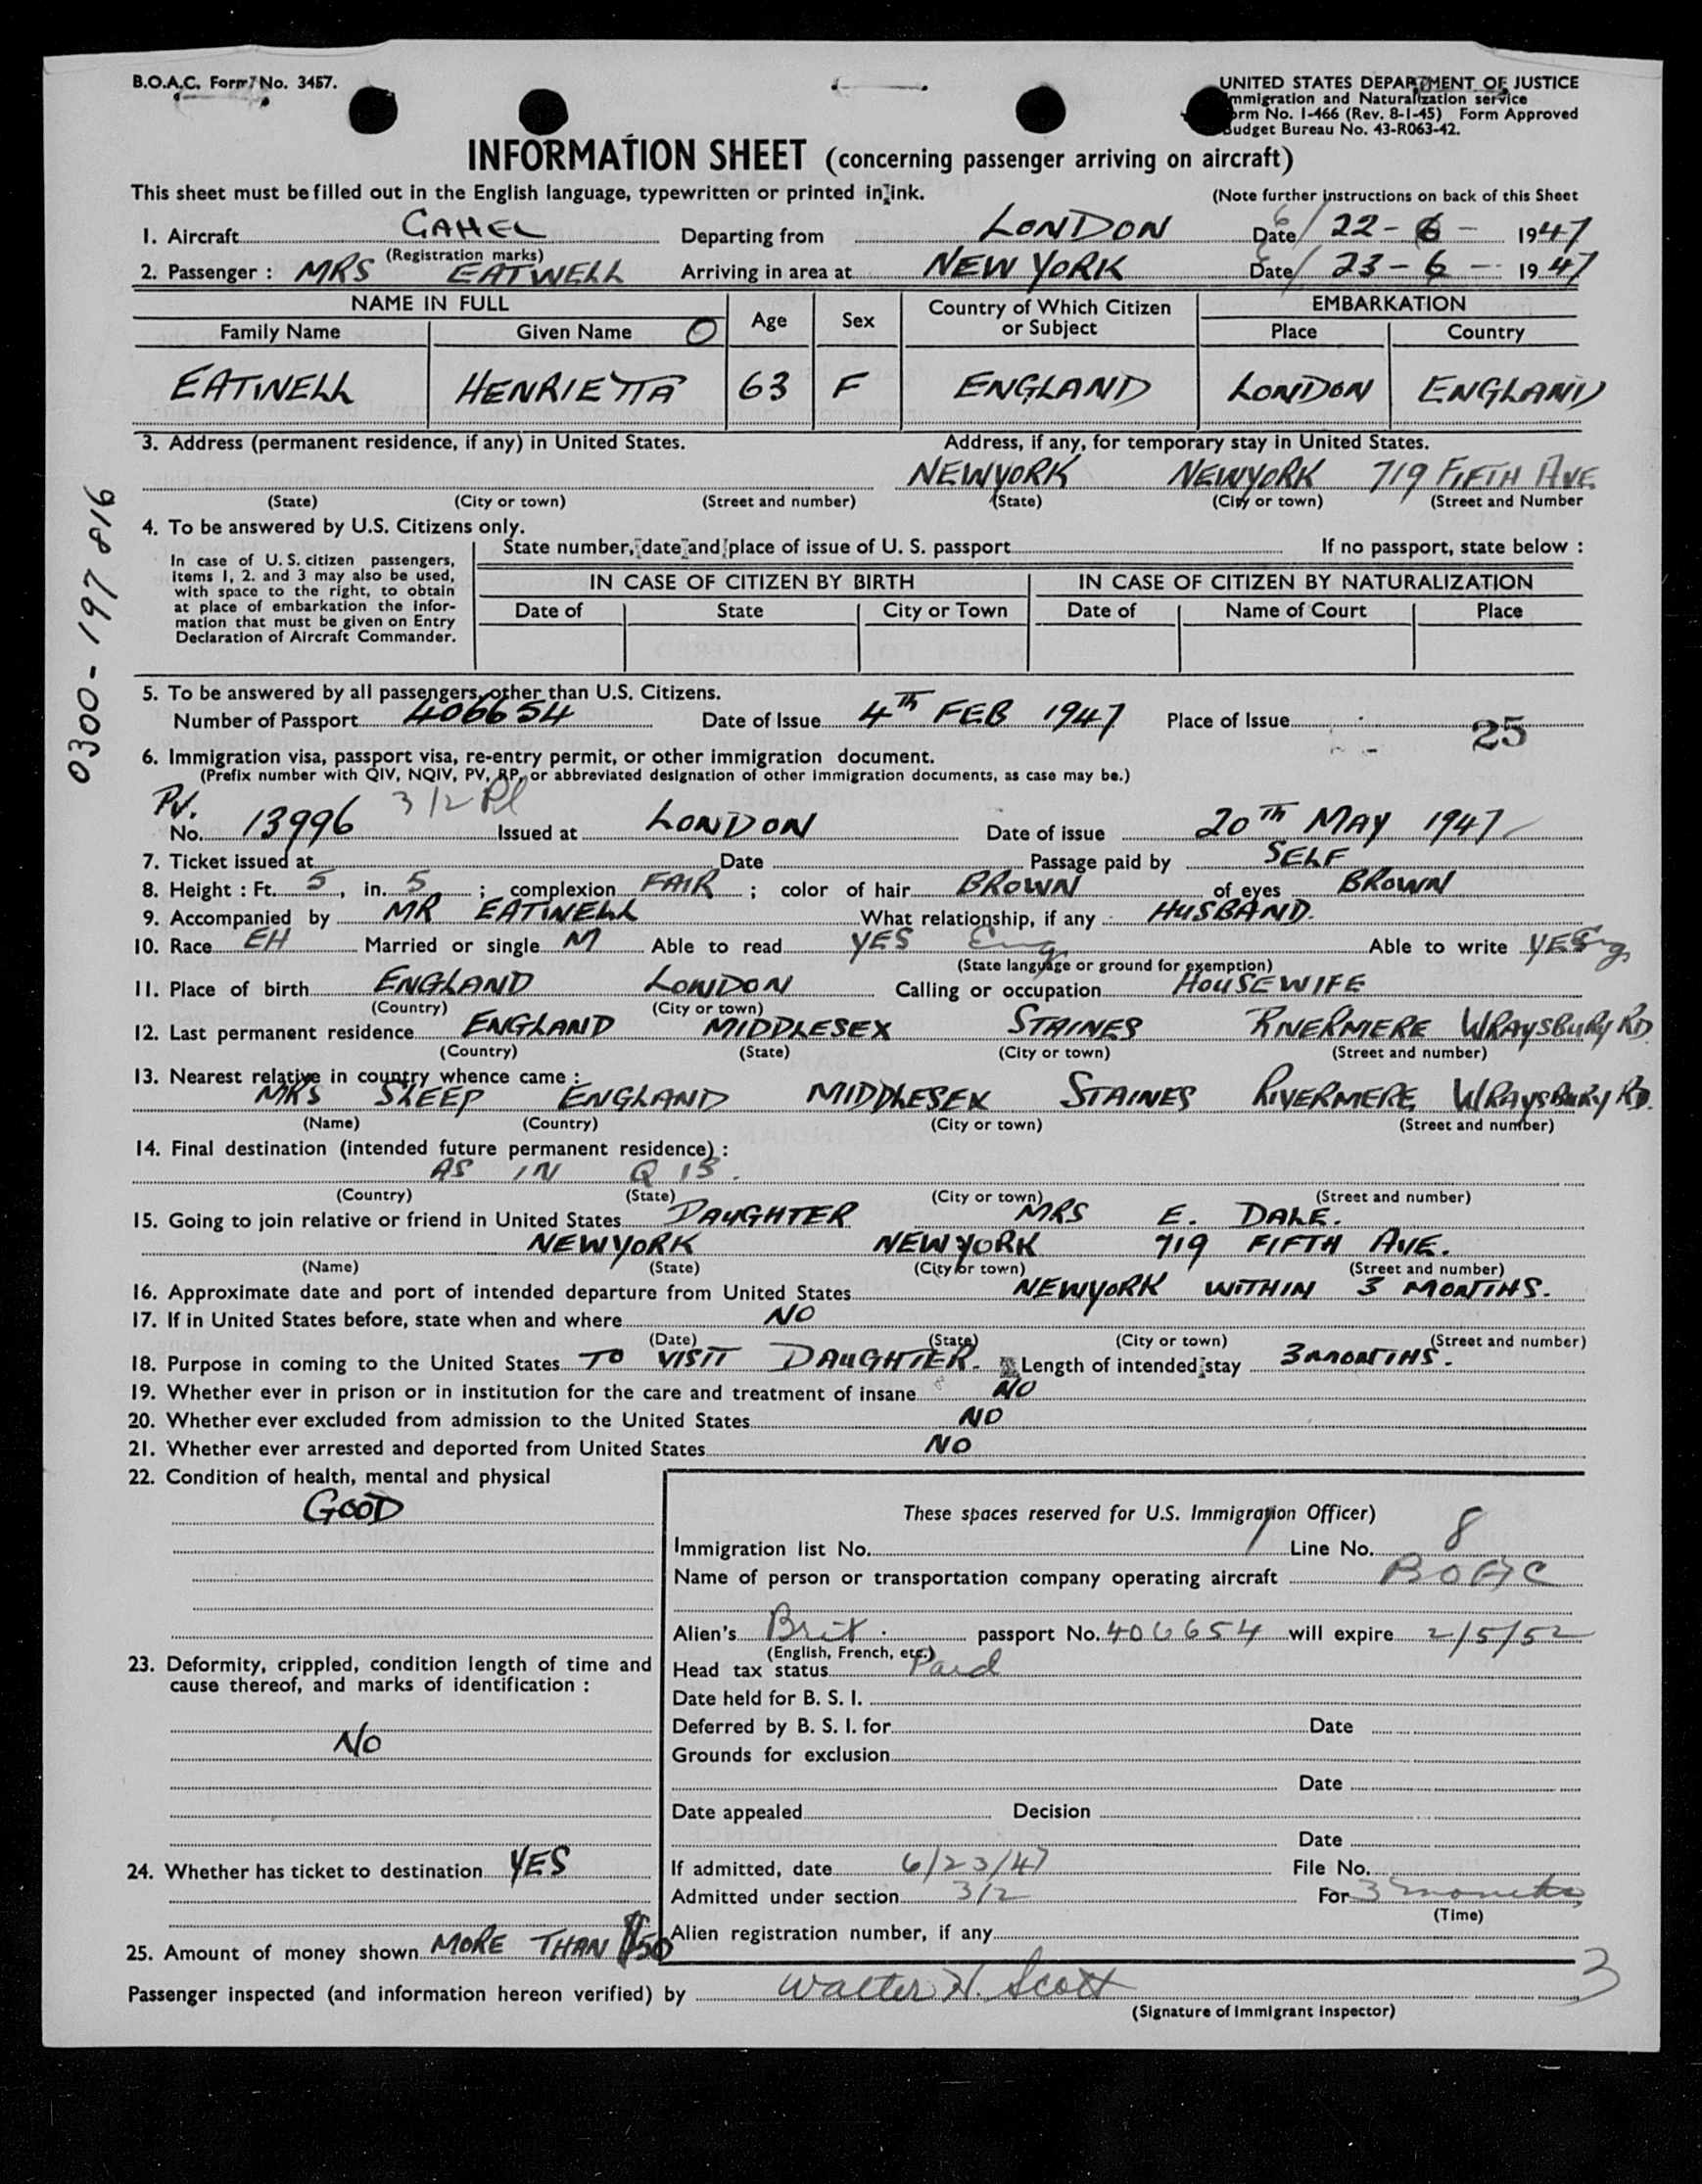 B.O.A.C. Form No. 3457.
UNITED STATES DEPARTMENT OF JUSTICE
Immigration and Naturalization service
Form No. I-466 (Rev. 8-1-45) Form Approved
Budget Bureau No. 43-R063-42.
INFORMATION SHEET (concerning passenger arriving on aircraft)
This sheet must be filled out in the English language, typewritten or printed in ink. (Note further instructions on back of this Sheet
1. Aircraft GAHEL Departing from LONDON Date 22-6- 1947
(Registration marks)
2. Passenger: MRS EATWELL Arriving in area at NEW YORK Date 23-6- 1947
NAME IN FULL Age Sex Country of Which Citizen or Subject EMBARKATION
Family Name Given Name O Place Country
EATWELL HENRIETTA 63 F ENGLAND LONDON ENGLAND
3. Address (permanent residence, if any) in United States. Address, if any, for temporary stay in United States.
NEWYORK NEWYORK 719 FIFTH AVE.
(State) (City or town) (Street and number) (State) (City or town) (Street and Number
0300-197 816
4. To be answered by U.S. Citizens only.
In case of U.S. citizen passengers,
Items 1, 2. and 3 may also be used,
with space to the right, to obtain
at place of embarkation the infor-
mation that must be given on Entry
Declaration of Aircraft Commander.
State number, date and place of issue of U. S. passport If no passport, state below :
IN CASE OF CITIZEN BY BIRTH IN CASE OF CITIZEN BY NATURALIZATION
Date of State City or Town Date of Name of Court Place
5. To be answered by all passengers, other than U.S. Citizens.
Number of Passport 406654 Date of Issue 4TH FEB 1947 Place of Issue
25
6. Immigration visa, passport visa, re-entry permit, or other immigration document.
(Prefix number with QIV, NQIV, PV, RP, or abbreviated designation of other immigration documents, as case may be.)
PV. 3/2
No. 13996 Issued at LONDON Date of issue 20TH MAY 1947
7. Ticket issued at Date Passage paid by SELF
8. Height : Ft. 5, in. 5 ; complexion FAIR ; color of hair BROWN of eyes BROWN
9. Accompanied by MR EATWELL What relationship, if any HUSBAND.
10. Race EH Married or single M Able to read YES Eng Able to write YES Eng
(State language or ground for exemption)
11. Place of birth ENGLAND LONDON Calling or occupation HOUSEWIFE
(Country) (City or town)
12. Last permanent residence ENGLAND MIDDLESEX STAINES RIVERMERE WRAYSBURY RD
(Country) (State) (City or town) (Street and number)
13. Nearest relative in country whence came :
MRS SLEEP ENGLAND MIDDLESEX STAINES RIVERMERE WRAYSBURY RD.
(Name) (Country) (City or town) (Street and number)
14. Final destination (intended future permanent residence) :
AS IN Q 13.
(Country) (State) (City or town) (Street and number)
15. Going to join relative or friend in United States DAUGHTER MRS E. DALE.
NEWYORK NEWYORK 719 FIFTH AVE.
(Name) (State) (City or town) (Street and number)
16. Approximate date and port of intended departure from United States NEWYORK WITHIN 3 MONTHS.
17. If in United States before, state when and where NO
(Date) (State) (City or town) (Street and number)
18. Purpose in coming to the United States TO VISIT DAUGHTER. Length of intended stay 3 MONTHS.
19. Whether ever in prison or in institution for the care and treatment of insane NO
20. Whether ever excluded from admission to the United States NO
21. Whether ever arrested and deported from United States NO
22. Condition of health, mental and physical
GOOD
23. Deformity, crippled, condition length of time and
cause thereof, and marks of identification :
NO
24. Whether has ticket to destination YES
25. Amount of money shown MORE THAN $50
These spaces reserved for U.S. Immigration Officer)
Immigration list No. 1 Line No. 8
Name of person or transportation company operating aircraft BOAC
Alien's Brit. passport No. 406654 will expire 2/5/52
(English, French, etc.)
Head tax status Paid
Date held for B. S. I.
Deferred by B. S. I. for Date
Grounds for exclusion
Date
Date appealed Decision
Date
If admitted, date 6/23/47 File No.
Admitted under section 3/2 For 3 months
(Time)
Alien registration number, if any
Passenger inspected (and information hereon verified) by Walter H. Scott 3
(Signature of Immigrant Inspector)